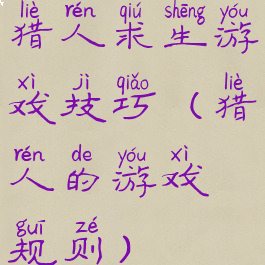 liè rén qiú shēng yóu
猎人求生游
xì jì qiǎo liè
戏技巧（猎
rén de yóu xì
人的游戏
guī zé
规则）